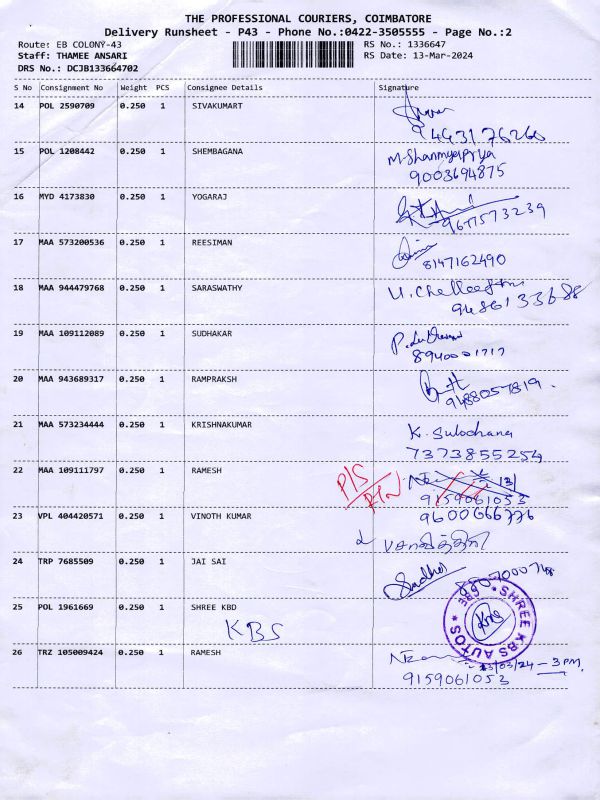 THE PROFESSIONAL COURIERS, COIMBATORE
Delivery Runsheet - P43 - Phone No.:0422-3505555 - Page No.:2
Route: EB COLONY-43
RS No.: 1336647
Staff: THAMEE ANSARI
RS Date: 13-Mar-2024
DRS No.: DCJB133664702
S No Consignment No Weight PCS Consignee Details Signature
14 POL 2590709 0.250 1 SIVAKUMART
9443176260
15 POL 1208442 0.250 1 SHEMBAGANA
9003694875
16 MYD 4173830 0.250 1 YOGARAJ
9677573239
17 MAA 573200536 0.250 1 REESIMAN
8147162490
18 MAA 944479768 0.250 1 SARASWATHY
9486133688
19 MAA 109112089 0.250 1 SUDHAKAR
8940001717
20 MAA 943689317 0.250 1 RAMPRAKSH
9488057819.
21 MAA 573234444 0.250 1 KRISHNAKUMAR K. Sulochana
7373855254
22 MAA 109111797 0.250 1 RAMESH P/S
9159061053
23 VPL 404420571 0.250 1 VINOTH KUMAR 9600666776
24 TRP 7685509 0.250 1 JAI SAI
25 POL 1961669 0.250 1 SHREE KBD
KBS
SHREE KBS AUTOS
26 TRZ 105009424 0.250 1 RAMESH
13/03/24 - 3 PM.
9159061053